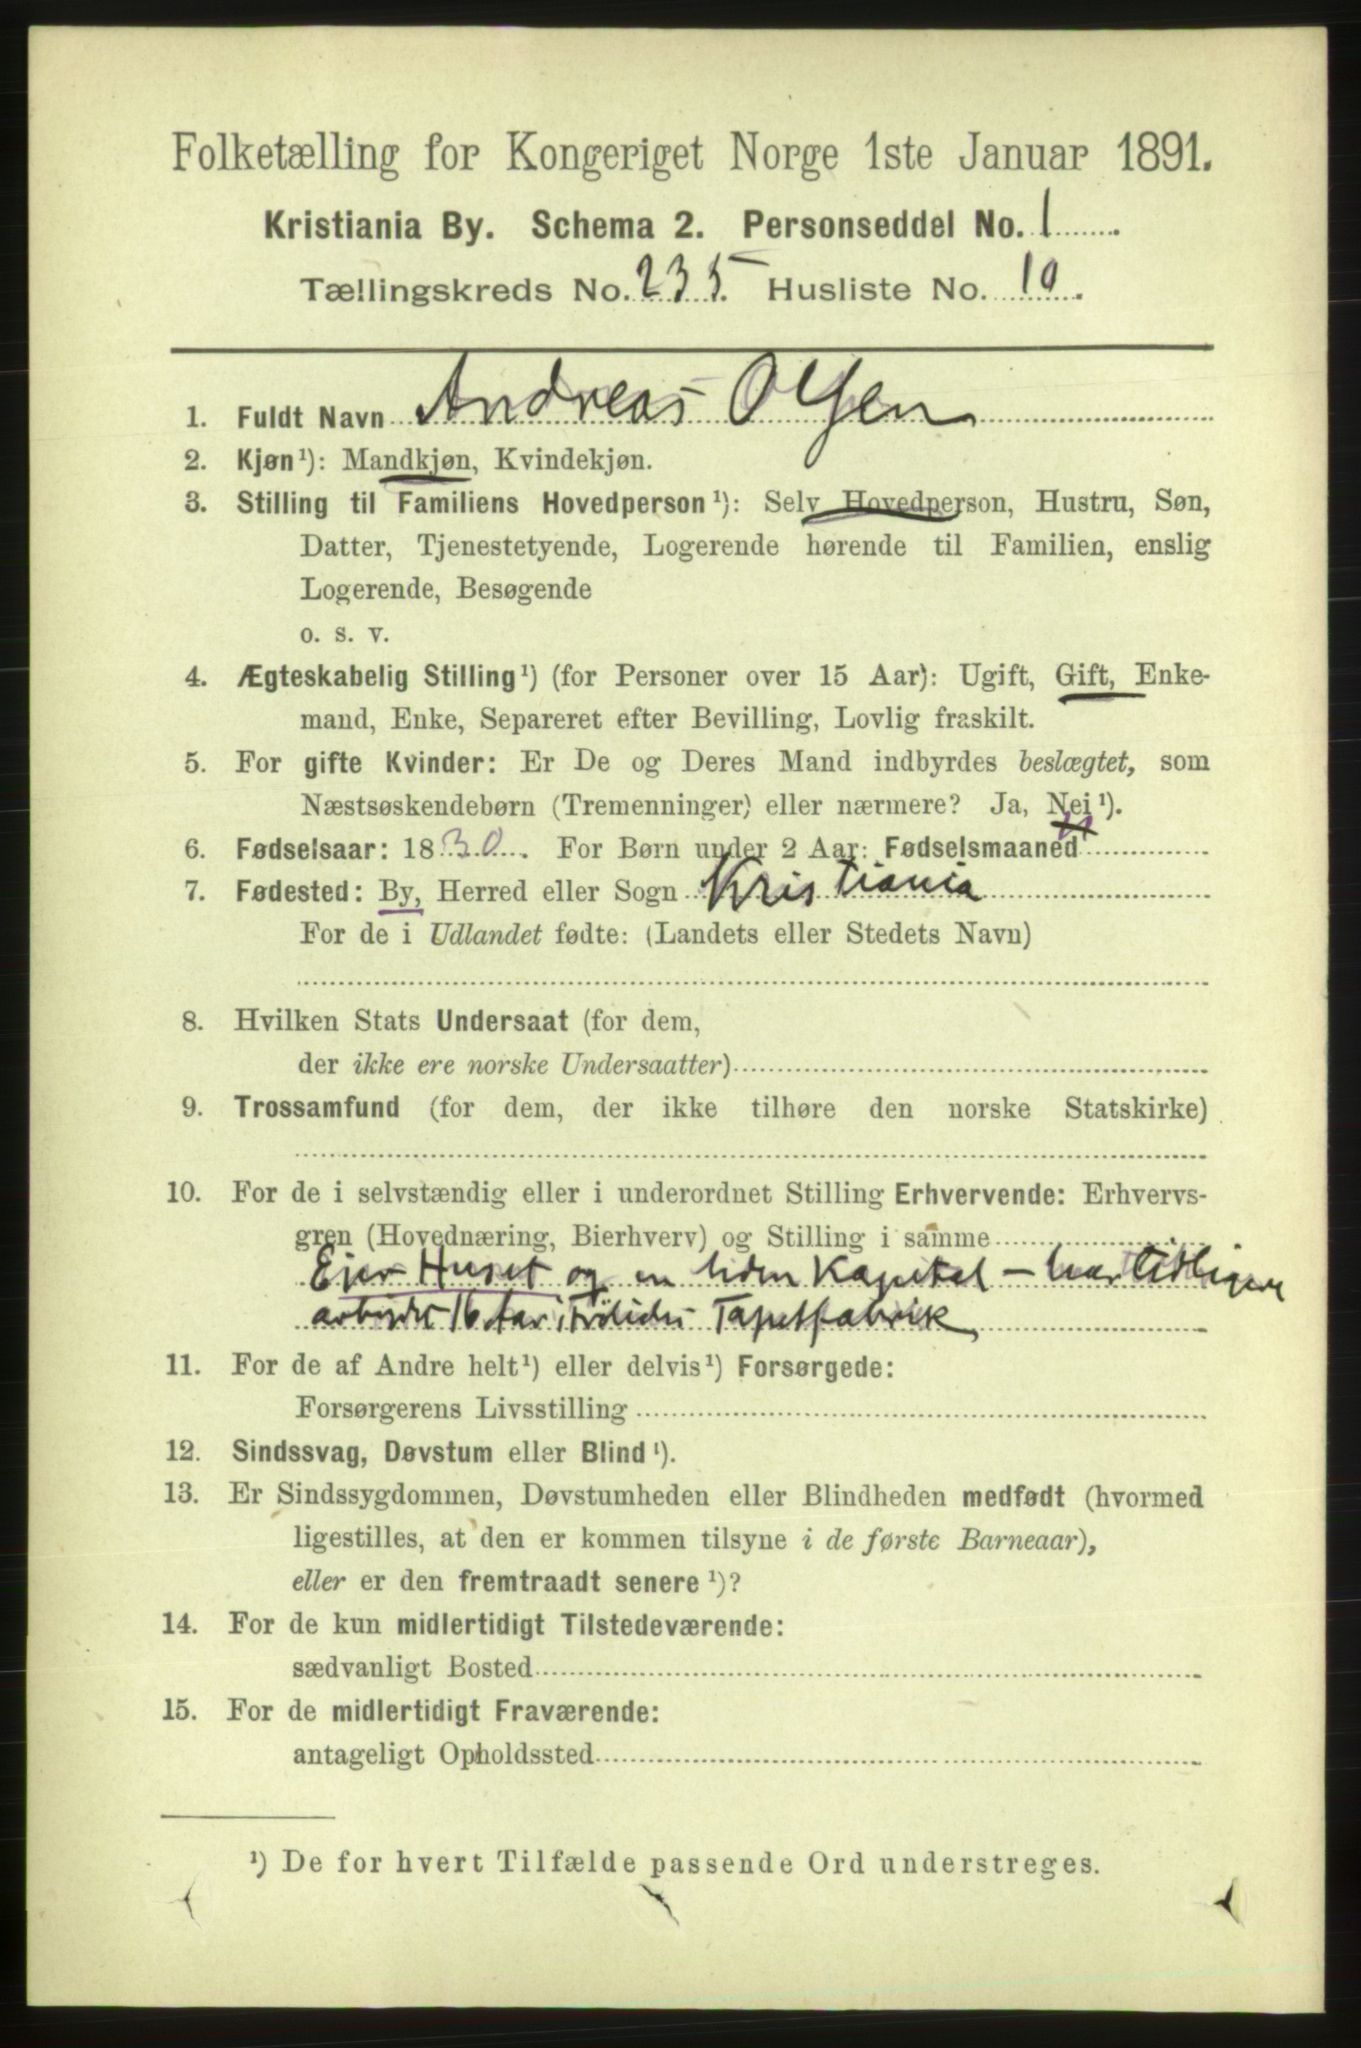 Folketælling for Kongeriget Norge 1ste Januar 1891.
Kristiania By. Schema 2. Personseddel No. 1
Tællingskreds No. 235. Husliste No. 10.
1. Fuldt Navn Andreas Olsen
2. Kjøn¹): Mandkjøn, Kvindekjøn.
3. Stilling til Familiens Hovedperson¹): Selv Hovedperson, Hustru, Søn,
Datter, Tjenestetyende, Logerende hørende til Familien, enslig
Logerende, Besøgende
o. s. v.
4. Ægteskabelig Stilling¹) (for Personer over 15 Aar): Ugift, Gift, Enke-
mand, Enke, Separeret efter Bevilling, Lovlig fraskilt.
5. For gifte Kvinder: Er De og Deres Mand indbyrdes beslægtet, som
Næstsøskendebørn (Tremenninger) eller nærmere? Ja, Nei¹).
6. Fødselsaar: 1830. For Børn under 2 Aar: Fødselsmaaned
7. Fødested: By, Herred eller Sogn Kristiania
For de i Udlandet fødte: (Landets eller Stedets Navn)
8. Hvilken Stats Undersaat (for dem,
der ikke ere norske Undersaatter)
9. Trossamfund (for dem, der ikke tilhøre den norske Statskirke)
10. For de i selvstændig eller i underordnet Stilling Erhvervende: Erhvervs-
gren (Hovednæring, Bierhverv) og Stilling i samme
Ejer Huset og en liden Kapital – har tidligere
arbejdet 16 Aar i Tapetfabrik
11. For de af Andre helt¹) eller delvis¹) Forsørgede:
Forsørgerens Livsstilling
12. Sindssvag, Døvstum eller Blind¹).
13. Er Sindssygdommen, Døvstumheden eller Blindheden medfødt (hvormed
ligestilles, at den er kommen tilsyne i de første Barneaar),
eller er den fremtraadt senere¹)?
14. For de kun midlertidigt Tilstedeværende:
sædvanligt Bosted
15. For de midlertidigt Fraværende:
antageligt Opholdssted
¹) De for hvert Tilfælde passende Ord understreges.